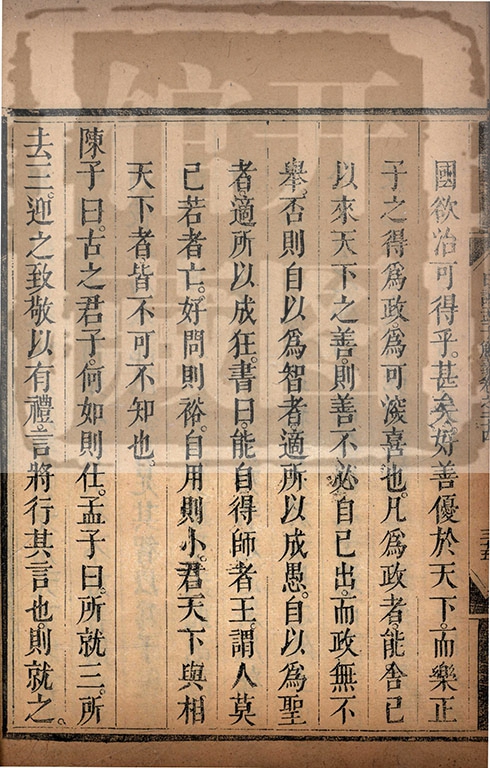 國欲治可得乎。甚矣。好善優於天下。而樂正
子之得爲政。爲可深喜也。凡爲政者。能舍己
以來天下之善。則善不必自己出。而政無不
舉。否則自以爲智者適所以成愚。自以爲聖
者。適所以成狂。書曰。能自得師者王。謂人莫
己若者亡。好問則裕。自用則小。君天下與相
天下者。皆不可不知也。
陳子曰。古之君子。何如則仕。孟子曰。所就三。所
去三。迎之致敬以有禮。言將行其言也。則就之。